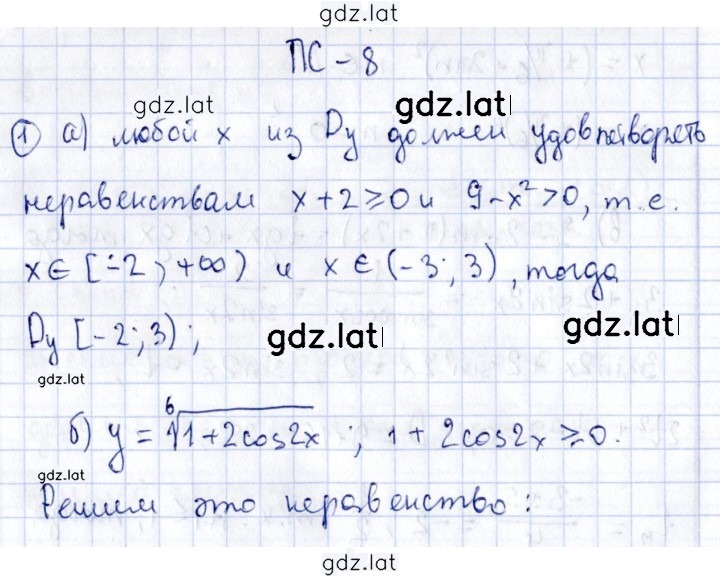 gdz.lat
ПС-8
gdz.lat gdz.lat
① а) любой x из Dy должен удовлетворять
неравенствам x+2≥0 и 9-x²>0, т.е.
x∈[-2; +∞) и x∈(-3; 3), тогда
Dy [-2; 3);
gdz.lat gdz.lat
gdz.lat
б) y = ⁶√(1+2cos2x) ; 1+2cos2x≥0.
gdz.lat
Решим это неравенство:
gdz.lat